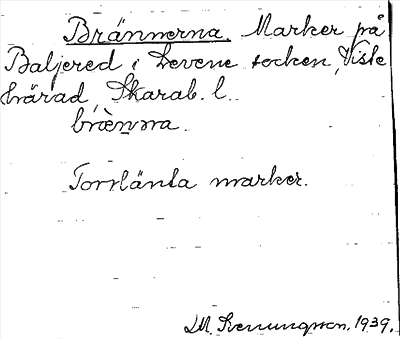 Brännerna. Marker på
Baljered i Levene socken, Viste
härad, Skarab. l.
brènna.
Torrlänta marker.
1939.